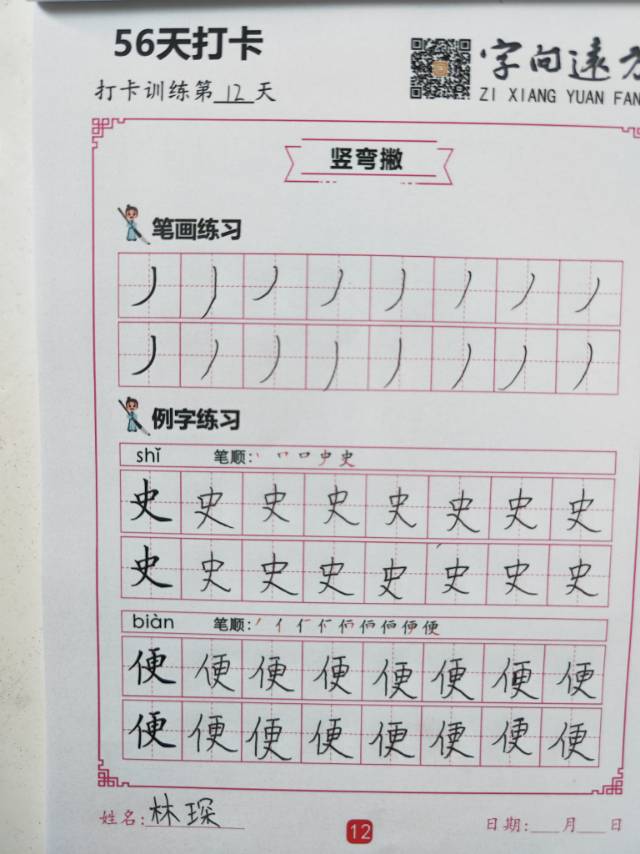 56天打卡
字向遠方
打卡训练第12天
ZI XIANG YUAN FAN
竖弯撇
笔画练习
丿丿丿丿丿丿丿丿
丿丿丿丿丿丿丿丿
例字练习
shǐ 笔顺:
史史史史史史史史
史史史史史史史史
biàn 笔顺:
便便便便便便便便
便便便便便便便便
姓名:林琛
12
日期:___月___日